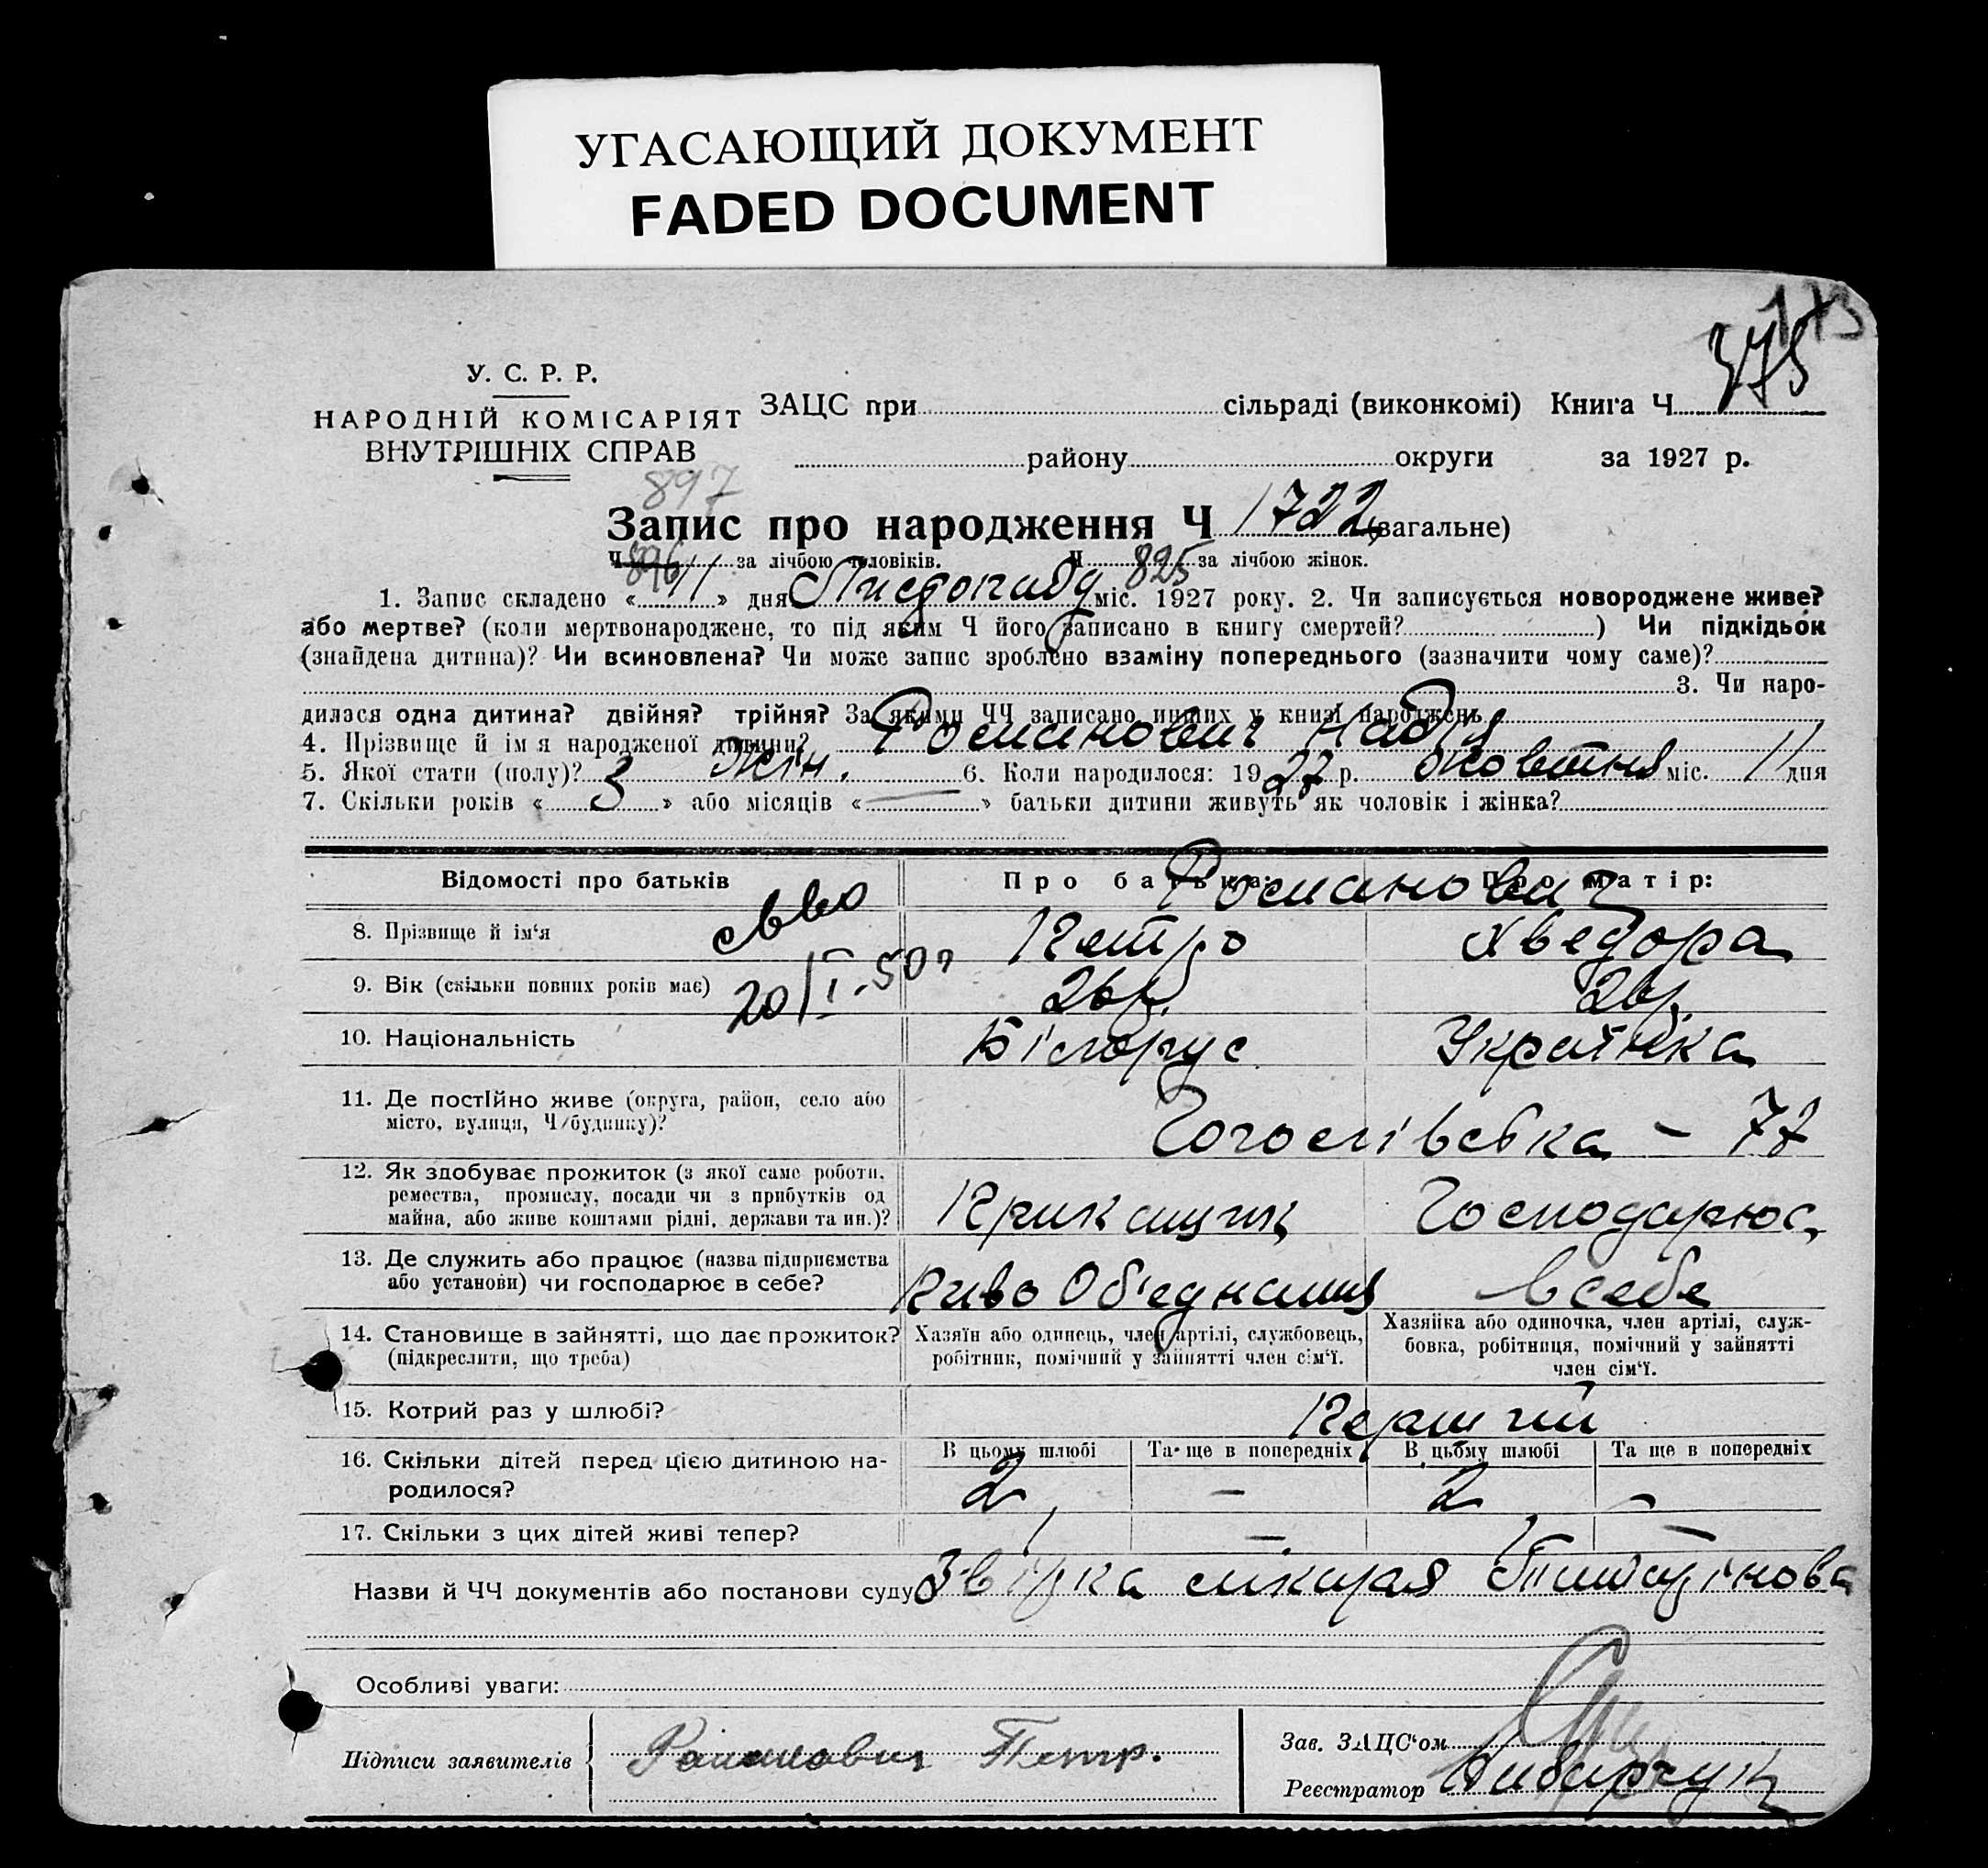 УГАСАЮЩИЙ ДОКУМЕНТ
FADED DOCUMENT
173
375
У. С. Р. Р.
НАРОДНІЙ КОМІСАРІЯТ
ВНУТРІШНІХ СПРАВ
ЗАЦС при сільраді (виконкомі) Книга Ч
району округи за 1927 р.
897
Запис про народження Ч 1722 (загальне)
Ч 896 за лічбою чоловіків. Ч 825 за лічбою жінок.
1. Запис складено « 11 » дня Листопаду міс. 1927 року. 2. Чи записується новороджене живе?
або мертве? (коли мертвонароджене, то під яким Ч його записано в книгу смертей? ) Чи підкідьок
(знайдена дитина)? Чи всиновлена? Чи може запис зроблено взаміну попереднього (зазначити чому саме)?
3. Чи наро-
дилася одна дитина? двійня? трійня? За якими ЧЧ записано инших у книзі народжень
4. Прізвище й ім я народженої дитини? Романович Надія
5. Якої стати (полу)? 3 Жін. 6. Коли народилося: 1927 р. жовтня міс. 11 дня
7. Скільки років « 3 » або місяців « — » батьки дитини живуть як чоловік і жінка?
Відомості про батьків Про батька: Про матір:
Романович
8. Прізвище й ім‘я Петро Хведора
св-во
20/I-50 г
9. Вік (скільки повних років має) 26 р. 26 р.
10. Національність Білорус Українка
11. Де постійно живе (округа, район, село або
місто, вулиця, Ч/будинку)? Гоголівська – 77
12. Як здобуває прожиток (з якої саме роботи,
ремества, промислу, посади чи з прибутків од
майна, або живе коштами рідні, держави та ин.)? Прикащик Господарює
13. Де служить або працює (назва підприємства
або установи) чи господарює в себе? Пиво Об'єднання в себе
14. Становище в зайнятті, що дає прожиток?
(підкреслити, що треба)
Хазяїн або одинець, член артілі, службовець,
робітник, помічний у зайнятті член сім‘ї.
Хазяйка або одиночка, член артілі, служ-
бовка, робітниця, помічний у зайнятті
член сім‘ї.
15. Котрий раз у шлюбі? Перший
16. Скільки дітей перед цією дитиною на-
родилося?
В цьому шлюбі Та ще в попередніх В цьому шлюбі Та ще в попередніх
2 – 2 –
17. Скільки з цих дітей живі тепер? 1 – 1 –
Назви й ЧЧ документів або постанови суду Звірка лікаря
Особливі уваги:
Підписи заявителів Романович Петр.
Зав. ЗАЦС‘ом
Реєстратор